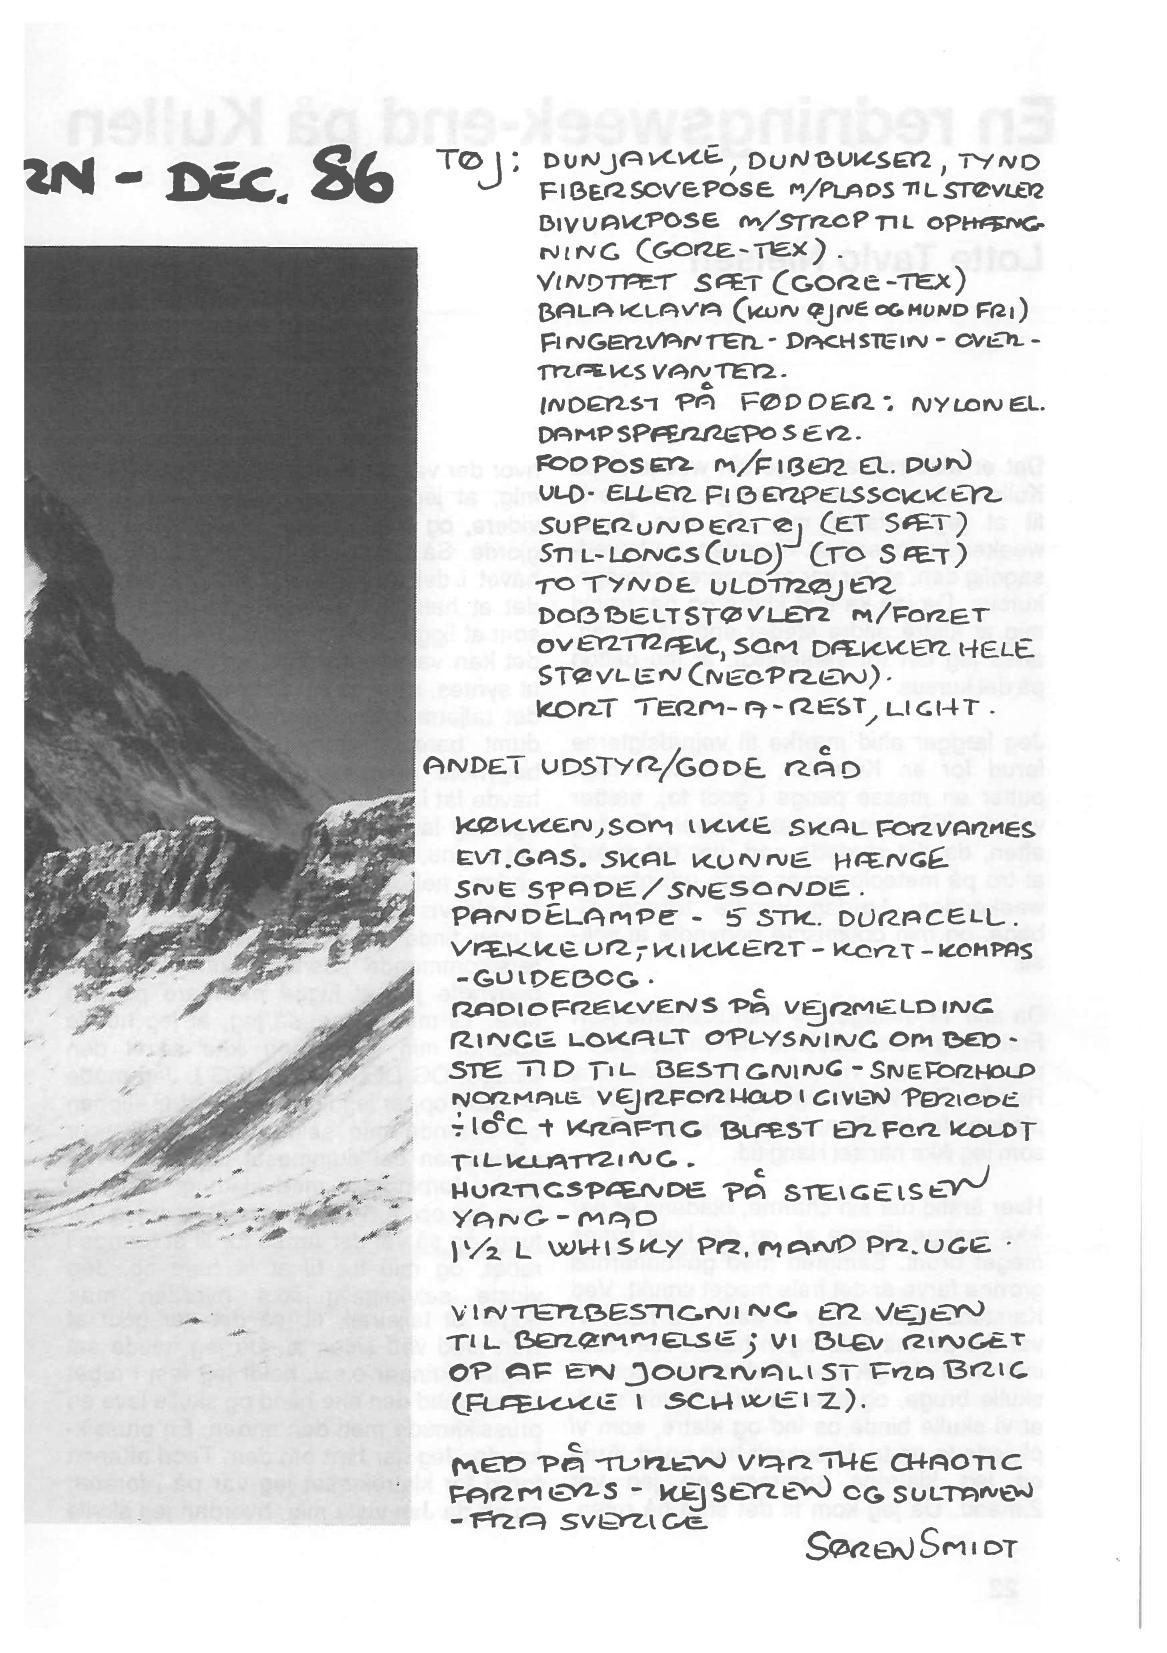 RN - DEC. 86
TØJ: DUNJAKKE, DUNBUKSER, TYND
FIBERSOVEPOSE M/PLADS TIL STØVLER
BIVUAKPOSE M/STROP TIL OPHÆNG-
NING (GORE-TEX).
VINDTÆT SÆT (GORE-TEX)
BALAKLAVA (KUN ØJNE OG MUND FRI)
FINGERVANTER - DACHSTEIN - OVER-
TRÆKSVANTER.
INDERST PÅ FØDDER: NYLON EL.
DAMPSPÆRREPOSER.
FODPOSER M/FIBER EL. DUN
ULD- ELLER FIBERPELSSOKKER
SUPERUNDERTØJ (ET SÆT)
STIL-LONGS (ULD) (TO SÆT)
TO TYNDE ULDTRØJER
DOBBELTSTØVLER M/FORET
OVERTRÆK, SOM DÆKKER HELE
STØVLEN (NEOPREN).
KORT TERM-A-REST, LIGHT.
ANDET UDSTYR/GODE RÅD
KØKKEN, SOM IKKE SKAL FORVARMES
EVT. GAS. SKAL KUNNE HÆNGE.
SNESPADE/SNESONDE.
PANDELAMPE - 5 STK. DURACELL
VÆKKEUR,-KIKKERT-KORT-KOMPAS
-GUIDEBOG.
RADIOFREKVENS PÅ VEJRMELDING
RINGE LOKALT OPLYSNING OM BED-
STE TID TIL BESTIGNING - SNEFORHOLD
NORMALE VEJRFORHOLD I GIVEN PERIODE
÷10°C + KRAFTIG BLÆST ER FOR KOLDT
TIL KLATRING.
HURTIGSPÆNDE PÅ STEIGEISEN
YANG-MAD
1 1/2 L WHISKY PR. MAND PR. UGE.
VINTERBESTIGNING ER VEJEN
TIL BERØMMELSE; VI BLEV RINGET
OP AF EN JOURNALIST FRA BRIG
(FLÆKKE I SCHWEIZ).
MED PÅ TUREN VAR THE CHAOTIC
FARMERS - KEJSEREN OG SULTANEN
-FRA SVERIGE
SØREN SMIDT